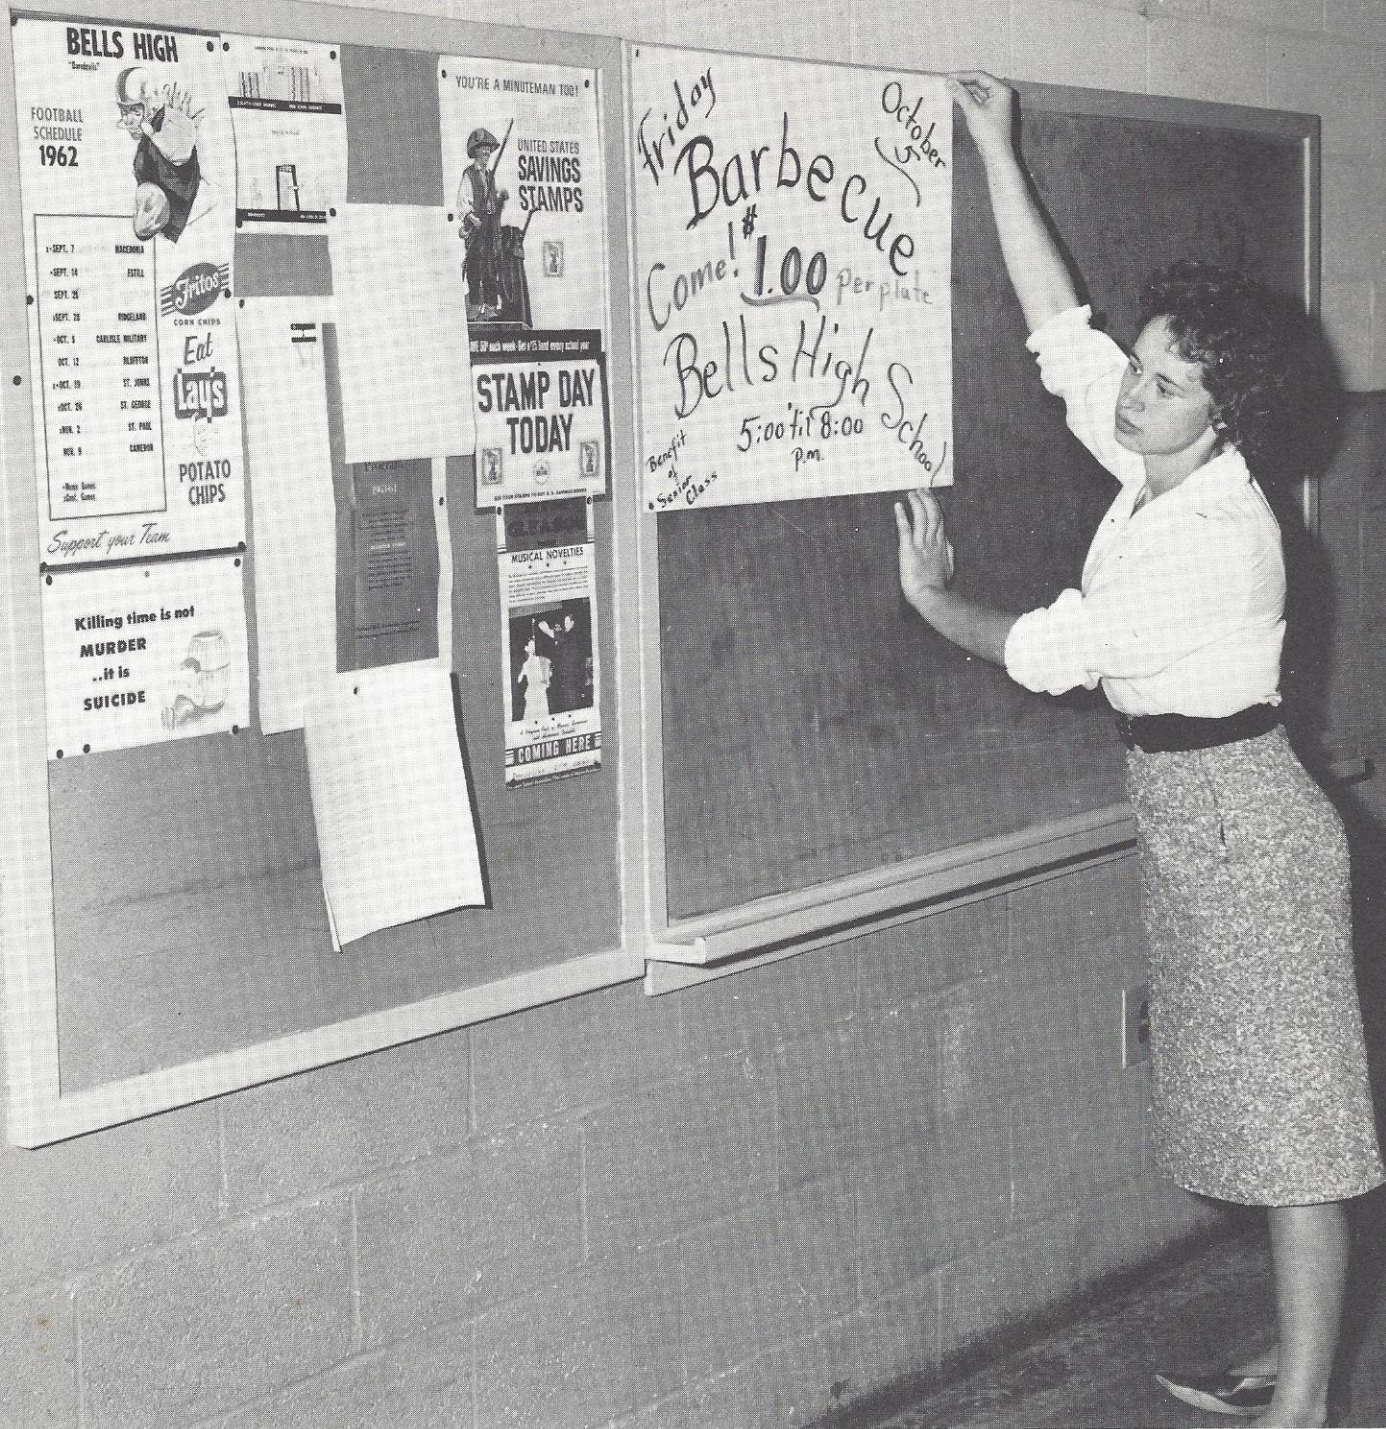 BELLS HIGH
"Daredevils"
FOOTBALL
SCHEDULE
1962
SEPT. 7 MACEDONIA
SEPT. 14 ESTILL
SEPT. 28 RIDGELAND
OCT. 5 CARLISLE MILITARY
OCT. 12 BLUFFTON
OCT. 19 ST. JOHNS
OCT. 26 ST. GEORGE
NOV. 2 ST. PAUL
NOV. 9 CAMERON
Home Games
Conf. Games
Fritos
CORN CHIPS
Eat
Lay's
POTATO
CHIPS
Support your Team
Killing time is not
MURDER
..it is
SUICIDE
YOU'RE A MINUTEMAN TOO!
UNITED STATES
SAVINGS
STAMPS
each week
bond every school year
STAMP DAY
TODAY
Program
GLEASON
MUSICAL NOVELTIES
COMING HERE
Friday
October
5
Barbecue
Come! $1.00 per plate
Bells High School
5:00 til 8:00
p.m.
Benefit
of
Senior
Class